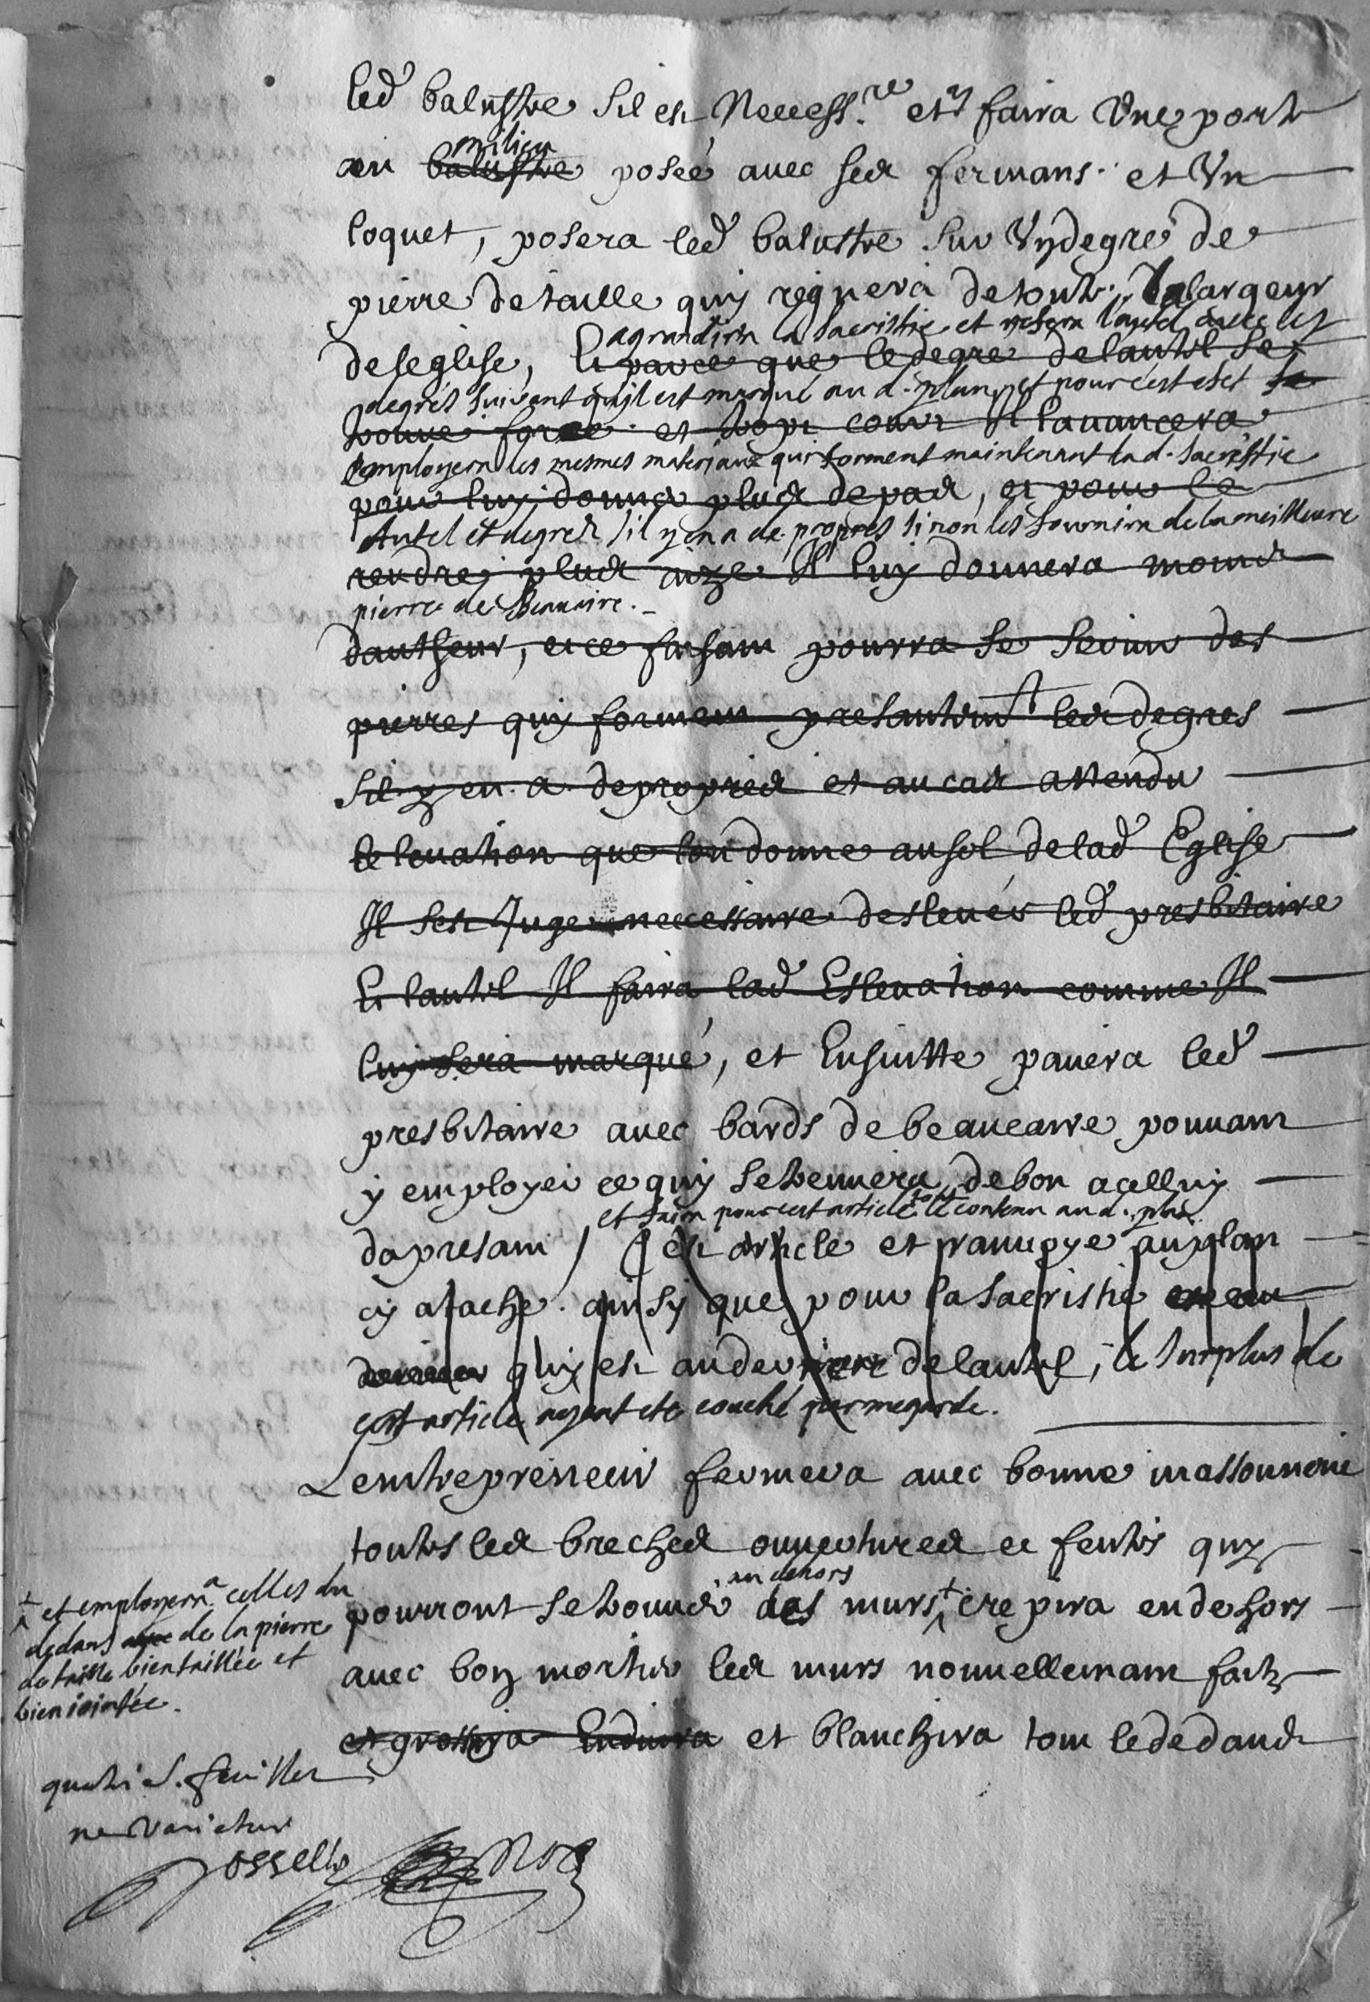 led balustre sil est Necess.re et y faira Une porte
au balustre milieu posée avec ses fermans et Un
loquet, posera led balustre sur Un degre de
pierre de taille quy regnera de toute la largeur
agrandira la sacristie et refera l'autel avec les
de leglise, Et parce que le degre de lautel se
degres suivant qu'il est marqué au d. plan, et pour cest efet
trouve forcé et trop court Il lavancera
employera les mesmes materiaux qui forment maintenant la d. sacristie
pour luy donner plus de pas, et pour le
Autel et degres s'il y en a de propres sinon les fournira de la meilleure
rendre plus aize Il luy donnera moins
pierre de Beaucaire.
dautheur, et ce faisant pourra se servir des
pierres quy forment presantemt les degres
Sil y en a de propres et au cas attendu
lelevation que lon donne au sol de lad Eglise
Il sest Juge necessaire deslever led presbitaire
Et lautel Il faira lad Eslevation comme Il
luy sera marqué, et Ensuitte pavera led
presbitaire avec bards de beaucaire pouvant
y employer ce quy se trouvera de bon a celluy
et faira pour cest article tout le contenu au d. plan
dapresant / cest article et au plan
cy atache ainsy que pour la sacristie
quy est au derriere de lautel, le surplus de
cest article ayant eté couché par megarde.
Lentrepreneur fermera avec bonne massonnerie
toutes les breches ouvertures et fentes quy
au dehors
pourront se trouver des murs + crepira en dehors
avec bon mortier les murs nouvellemant faits
et grossira Enduira et blanchira tout le dedans
+ et employera a celles du
dedans de la pierre
de taille bien taillée et
bien jointée.
quatre s. feuillet
ne varietur
Rossello